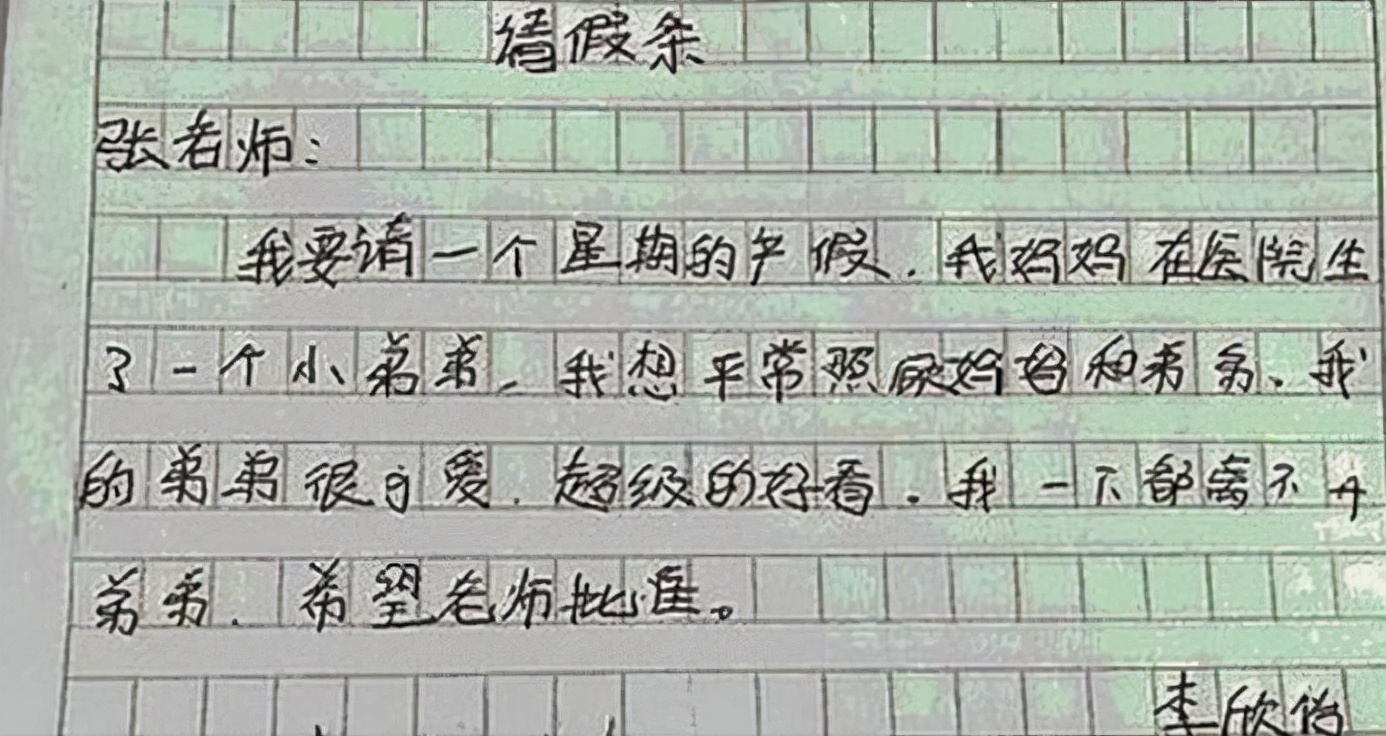 请假条
张老师：
我要请一个星期的产假.我妈妈在医院生
了一个小弟弟.我想平常照顾妈妈和弟弟、我
的弟弟很可爱.超级的好看.我一下都离不开
弟弟.希望老师批准。
李欣